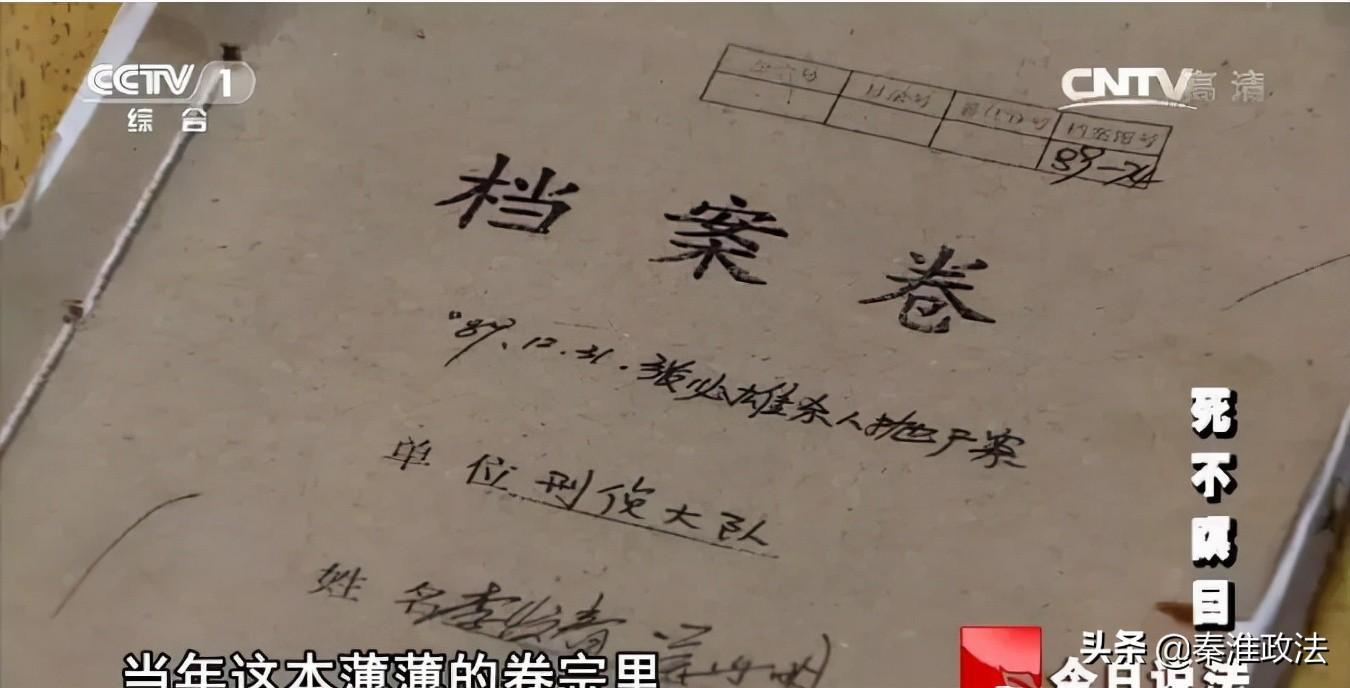 CCTV 1
综合
CNTV 高清
89-74
档案卷
"89.12.31.张必雄杀人抛尸案
单位 刑侦大队
姓名
死不瞑目
当年这本薄薄的卷宗里
今日说法
头条 @秦淮政法